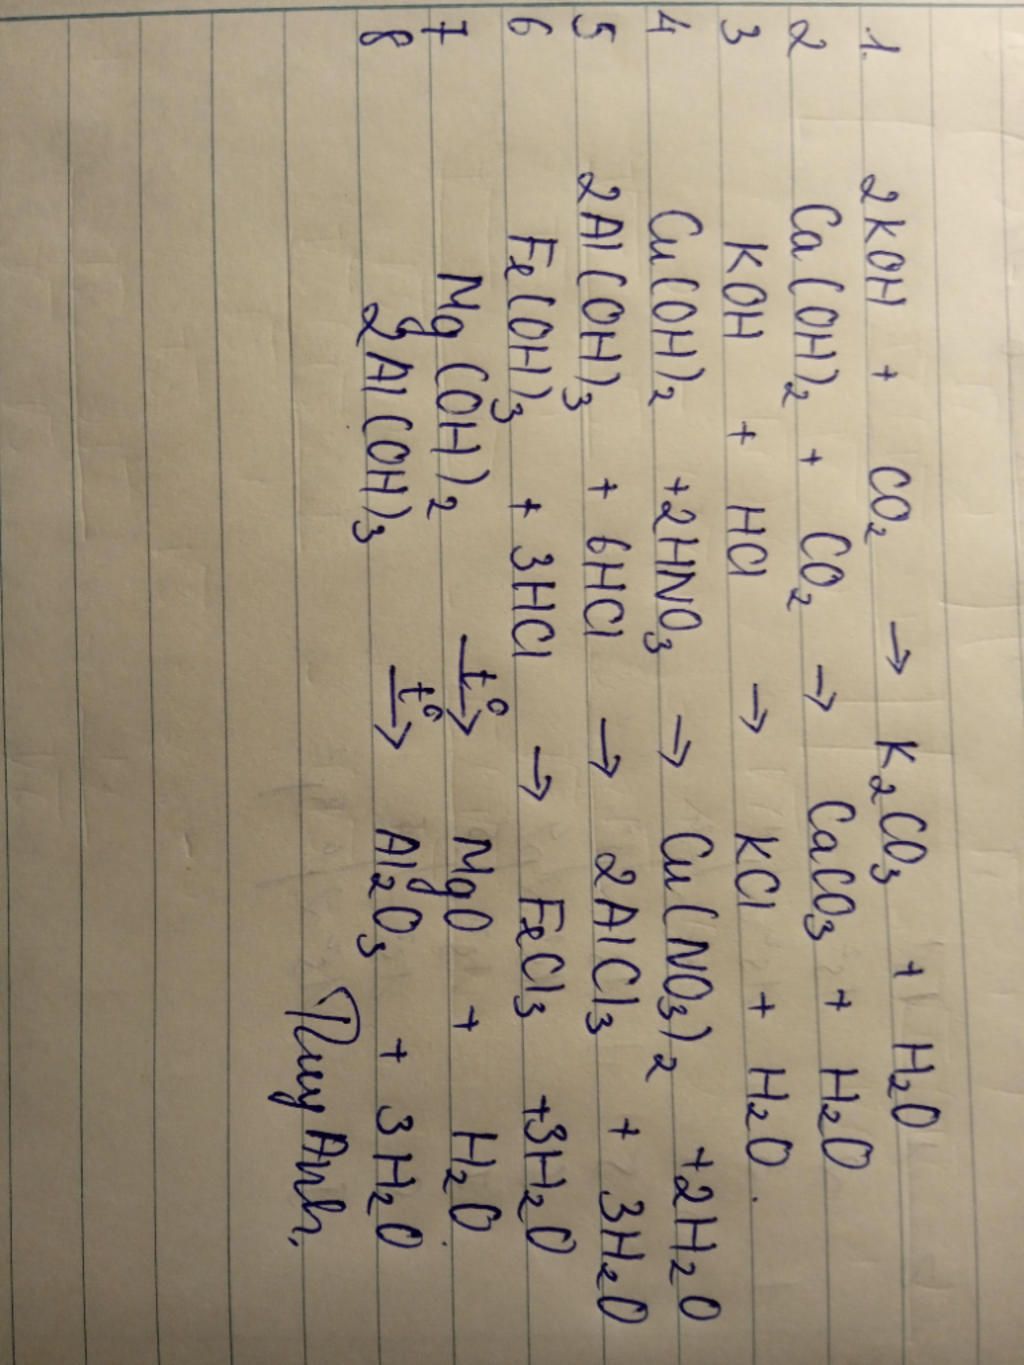 1. 2KOH + CO₂ → K₂CO₃ + H₂O
2 Ca(OH)₂ + CO₂ → CaCO₃ + H₂O
3 KOH + HCl → KCl + H₂O.
4 Cu(OH)₂ +2HNO₃ → Cu(NO₃)₂ +2H₂O
5 2Al(OH)₃ + 6HCl → 2AlCl₃ + 3H₂O
6 Fe(OH)₃ + 3HCl → FeCl₃ +3H₂O
7 Mg(OH)₂ →t° MgO + H₂O.
8 2Al(OH)₃ →t° Al₂O₃ + 3H₂O
Thuy Anh.